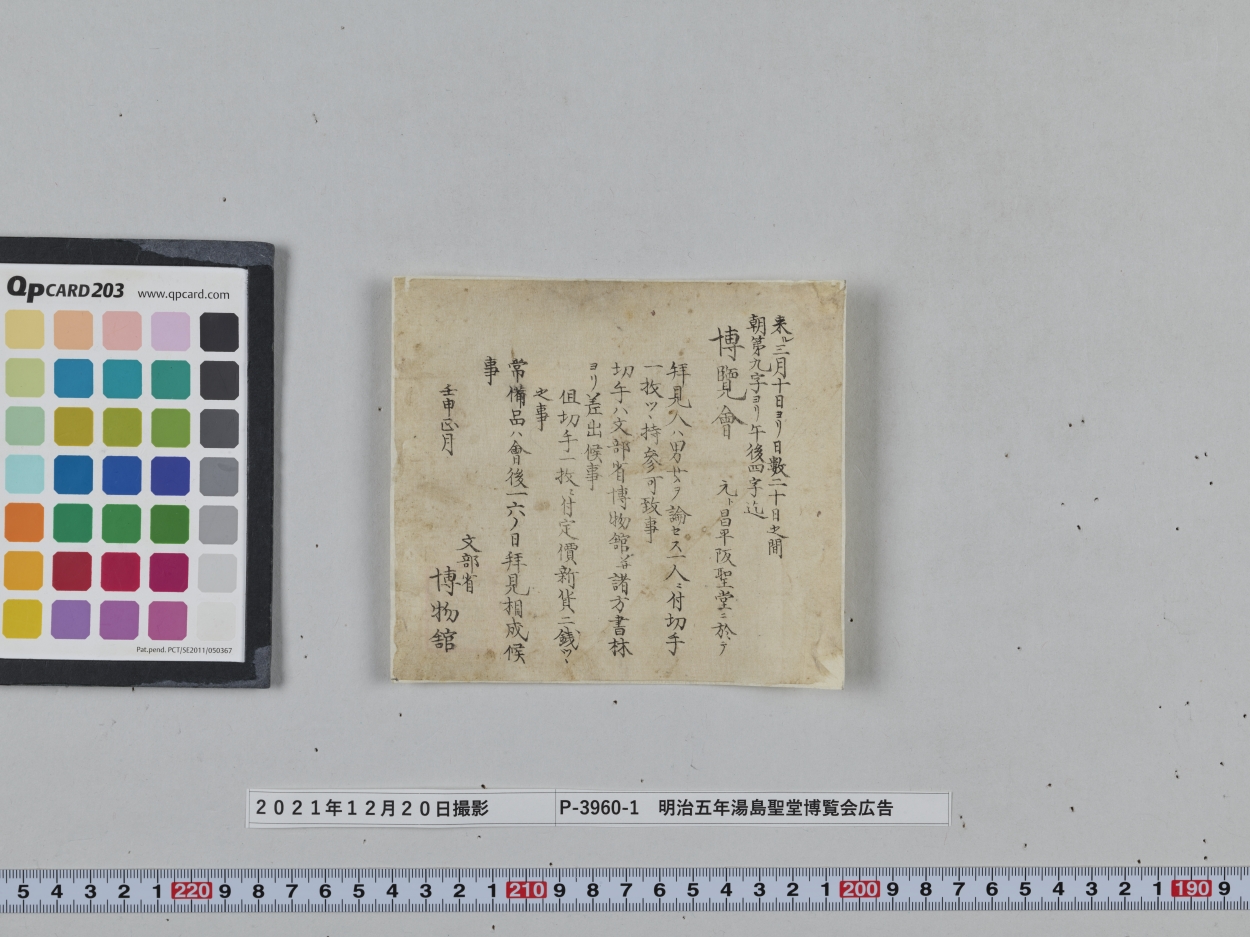 来ル三月十日ヨリ日數二十日之間
朝第九字ヨリ午後四字迄
博覽會 元ト昌平阪聖堂ニ於テ
拜見人ハ男女ヲ論セス一人ニ付切手
一枚ツヽ持参可致事
切手ハ文部省博物館並諸方書林
ヨリ差出候事
但切手一枚ニ付定價新貨二銭ツヽ
之事
常備品ハ會後一六ノ日拜見相成候
事
壬申正月
文部省
博物館
QPCARD203 www.qpcard.com
Pat.pend. PCT/SE2011/050367
2021年12月20日撮影 P-3960-1 明治五年湯島聖堂博覧会広告
5 4 3 2 1 220 9 8 7 6 5 4 3 2 1 210 9 8 7 6 5 4 3 2 1 200 9 8 7 6 5 4 3 2 1 190 9